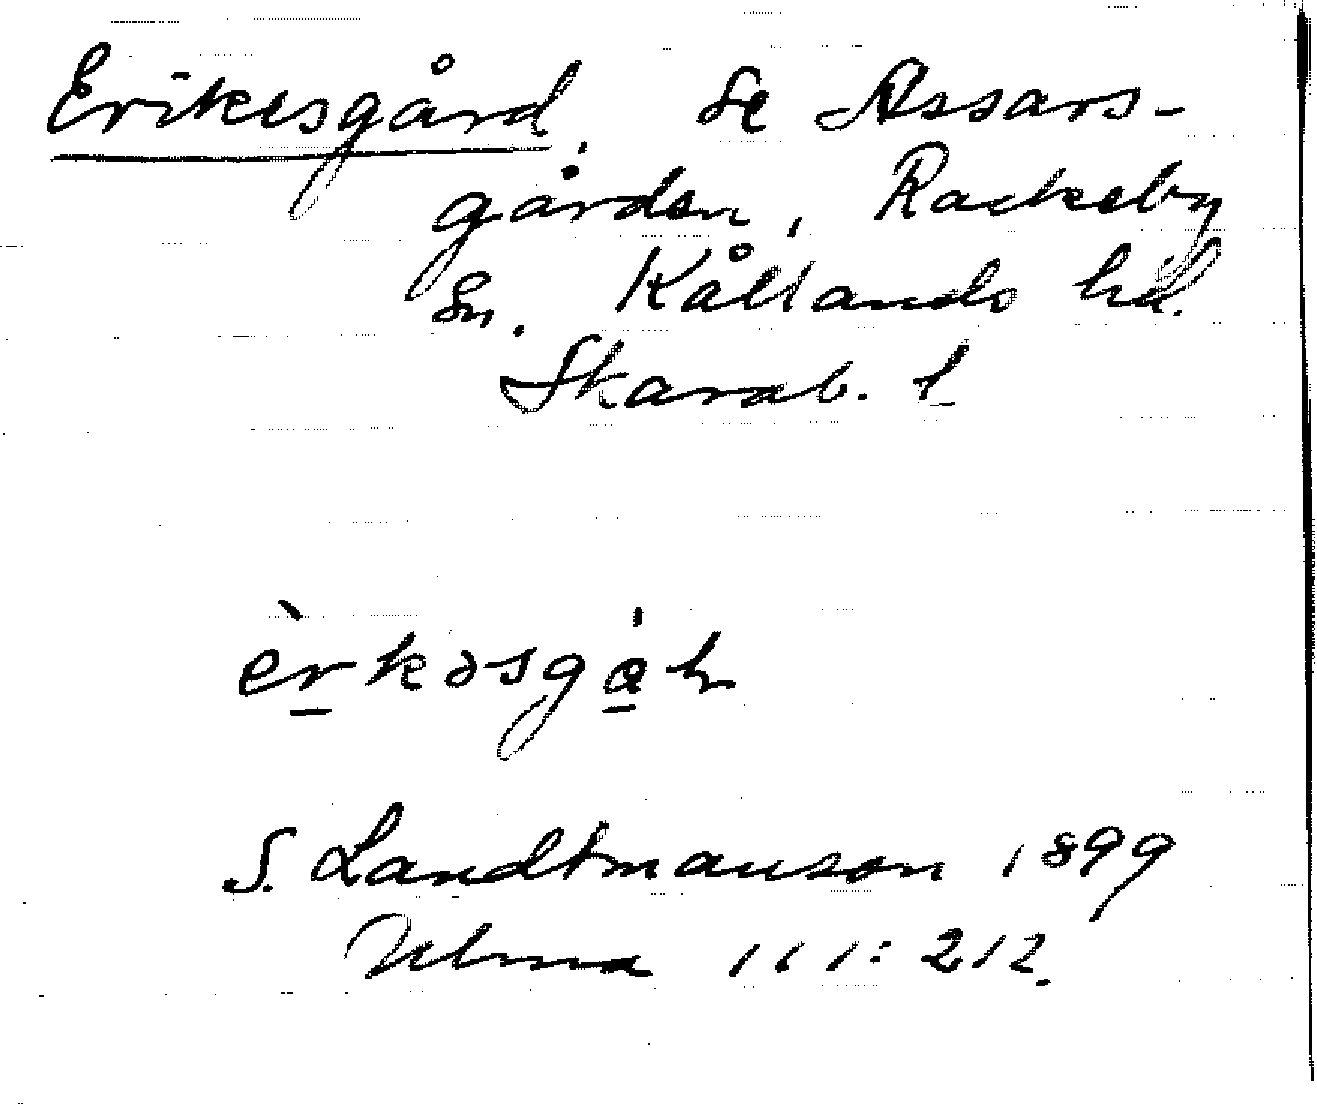 Erikesgård, se Assars-
gården, Rackeby
sn. Kållands hd.
Skarab. l
èrkəsgá
S. Landtmanson 1899
Ulma 111:212.